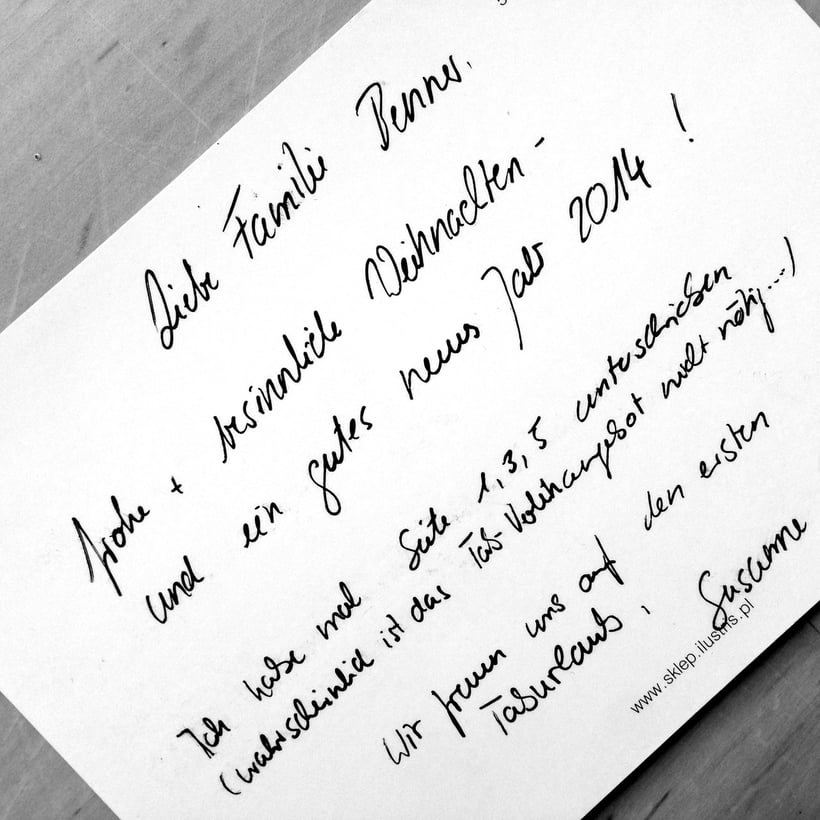 Liebe Familie Benner,
frohe + besinnliche Weihnachten -
und ein gutes neues Jahr 2014 !
Ich habe mal Seite 1, 3, 5 unterschrieben
(wahrscheinlich ist das Tab-Verleihangebot nicht nötig...)
Wir freuen uns auf den ersten
Taburlaub,
Susanne
www.sklep.ilustris.pl